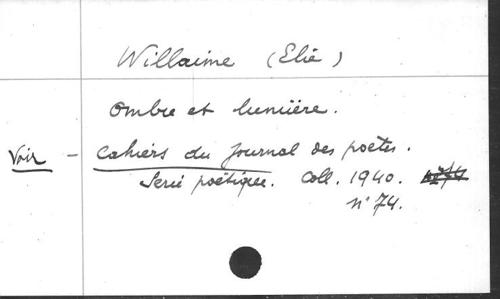 Willaime (Elie)
Ombre et lumière.
Voir - Cahiers du Journal des poètes.
Serie poétique. Coll. 1940.
n° 74.